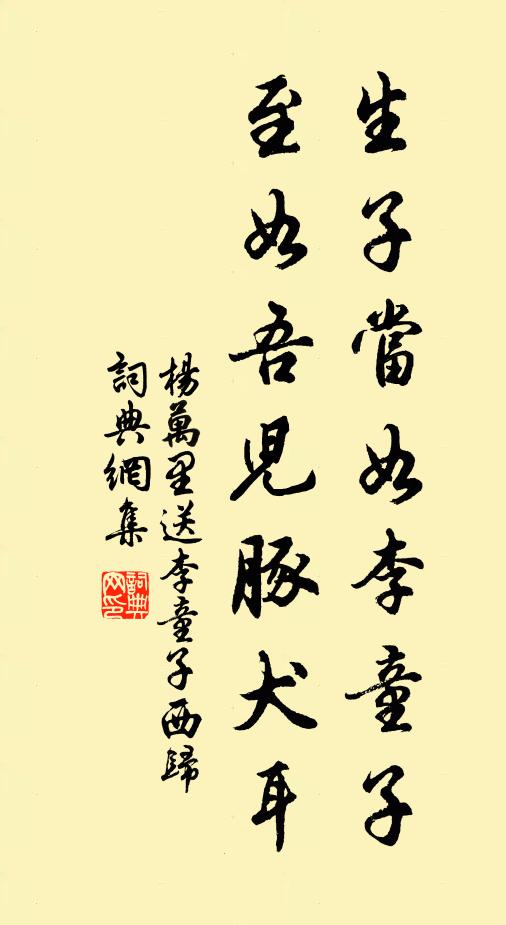 生子當如李童子
至如吾兒豚犬耳
楊萬里送李童子西歸
詞典網集
詞典網印